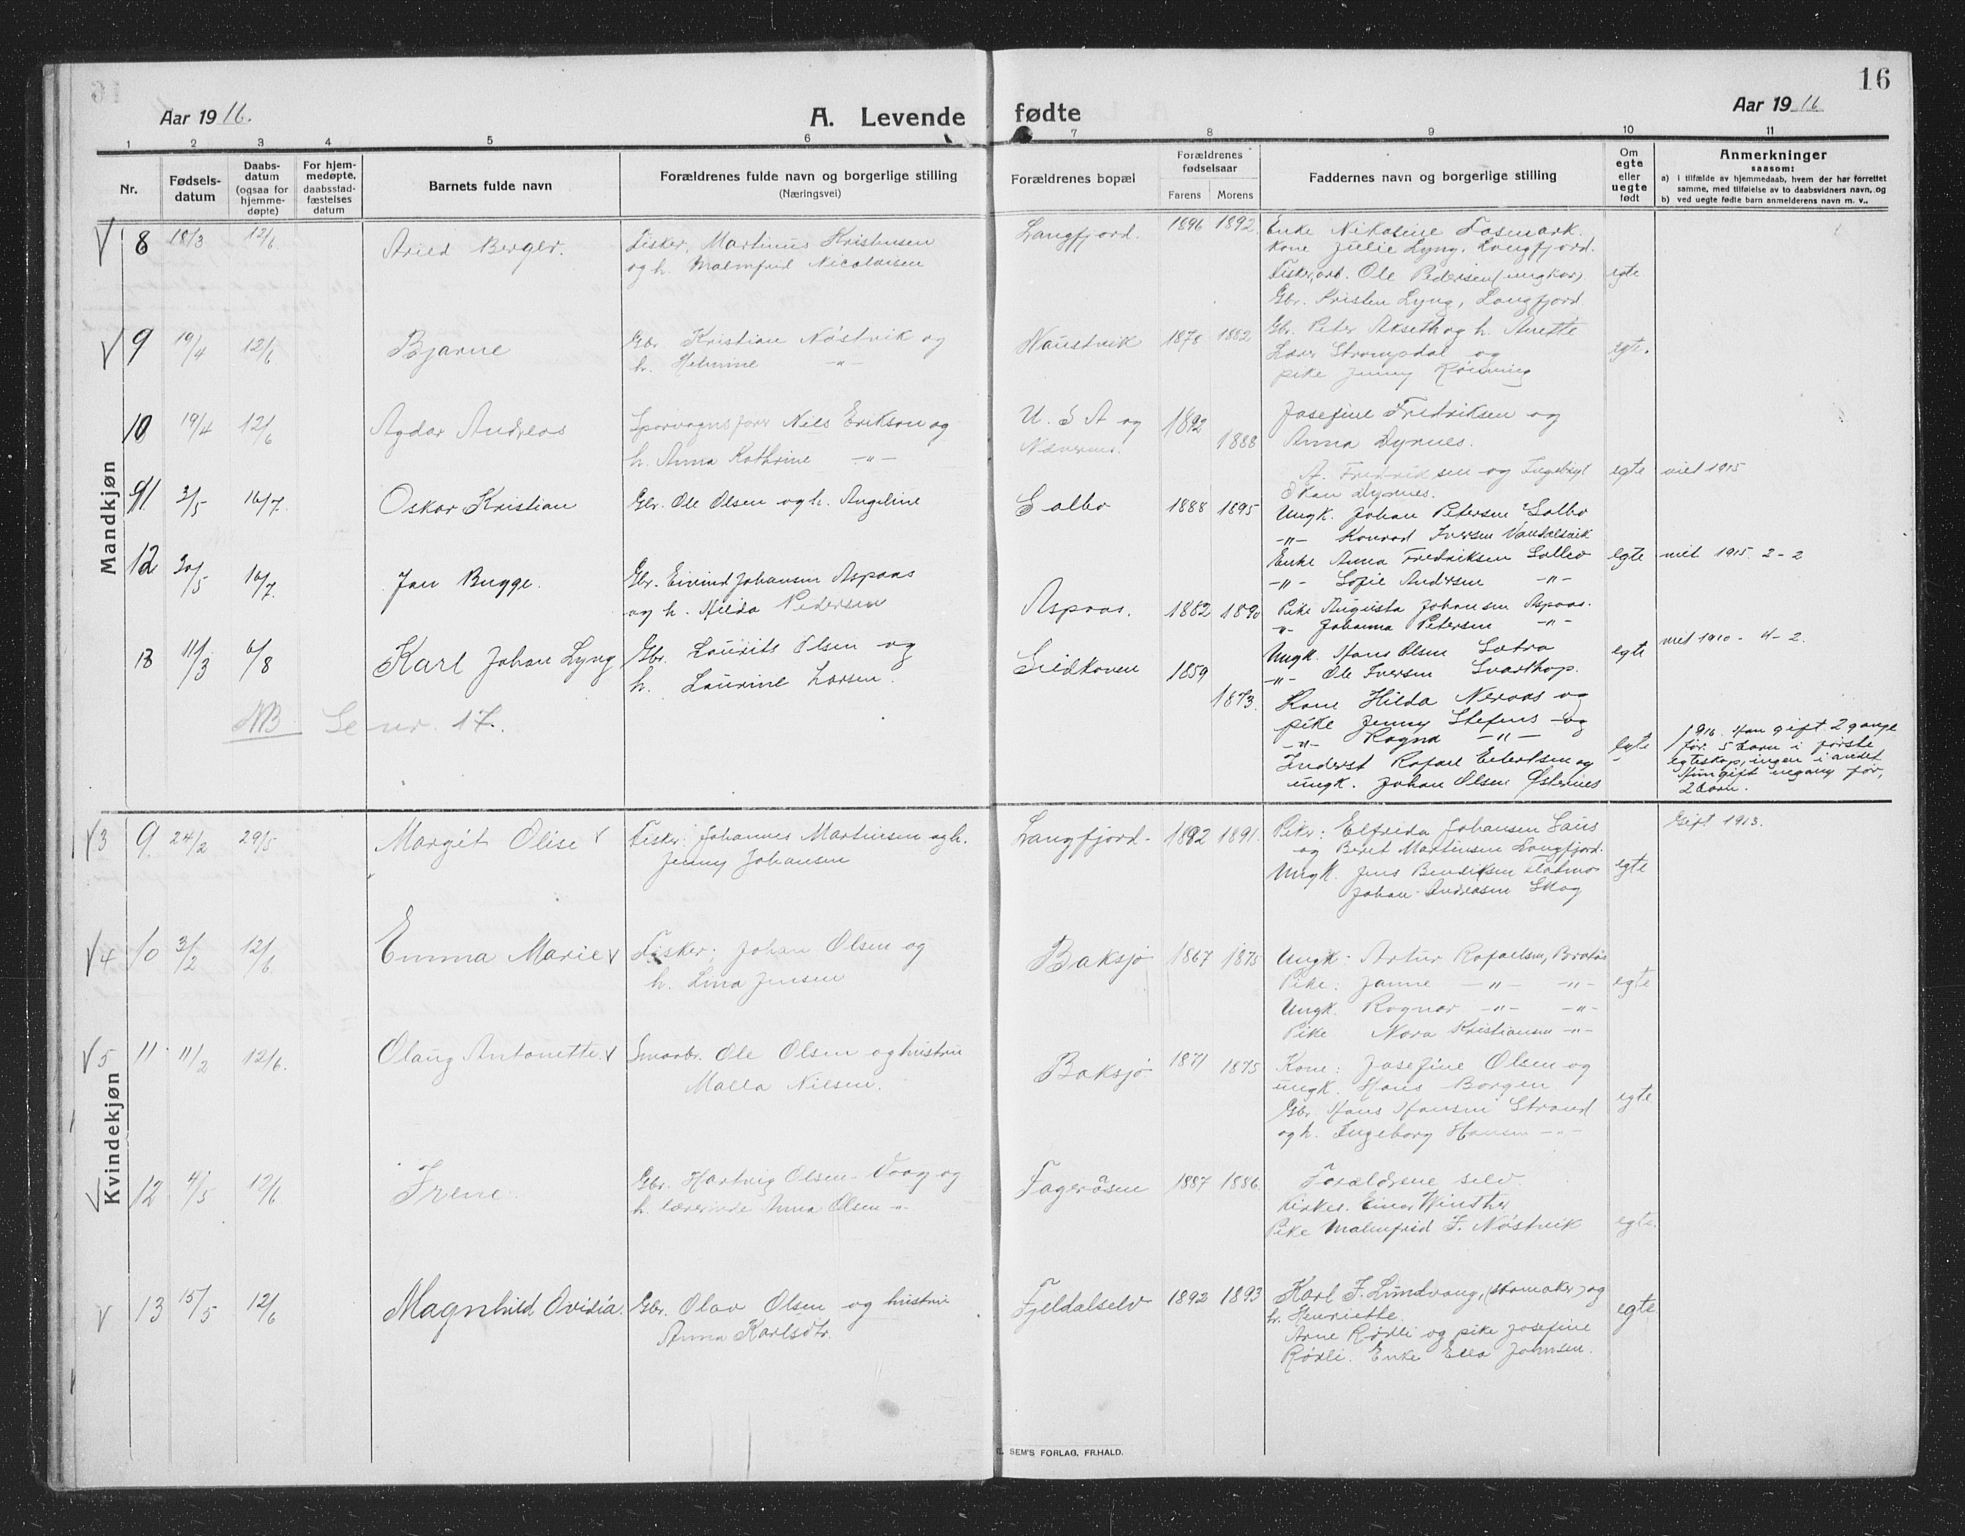 16
Aar 1916.
A. Levende fødte
Aar 1916
1 2 3 4 5 6 7 8 9 10 11
Nr.
Fødsels-
datum
Daabs-
datum
(ogsaa for
hjemme-
døpte)
For hjem-
medøpte,
daabsstad-
fæstelses
datum
Barnets fulde navn
Forældrenes fulde navn og borgerlige stilling
(Næringsvei)
Forældrenes bopæl
Forældrenes
fødselsaar
Farens Morens
Faddernes navn og borgerlige stilling
Om
egte
eller
uegte
født
Anmerkninger
saasom:
a) i tilfælde av hjemmedaab, hvem der har forrettet
samme, med tilføielse av to daabsvidners navn, og
b) ved uegte fødte barn anmelderens navn m. v..
Mandkjøn
8 18/3 12/6 Arild Berger. Fisker, Martinus Kristensen
og h. Malmfrid Nicolaisen
Langfjord. 1896 1892
Enke Nikoline Fosmark.
Kone Julie Lyng, Langfjord.
Fisker, arb. Ole Pedersen (ungkar)
Gbr. Kristen Lyng, Langfjord
egte
9 19/4 12/6 Bjarne Gbr. Kristian Nøstvik og
h. Helmine -"-
Naustvik 1878 1882
Gbr. Peter Akseth og h. Anette
Lars Strompdal og
pike Jenny Rønning
egte.
10 19/4 12/6 Agdar Andreas Sporvognsfører Nils Erikson og
h. Anna Kathrine -"-
U. S. A og
1892 1888
Josefine Fredriksen og
Anna Dyrnes.
A. Fredriksen og Ingebrgt
Dyrnes.
egte viet 1915
11 3/5 16/7. Oskar Kristian Gbr. Ole Olsen og h. Angeline
Salbo 1888 1895
Ungk. Johan Petersen Solbo
-"- Konrad Iversen
Enke Anna Fredriksen
-"- Sofie Andersen -"-
egte viet 1915 2-2
12 20/5 16/7. Jan Bugge. Gbr. Eivind Johansen Aspaas
og h. Hilda Pedersen
Aspaas. 1882 1890
Pike Augusta Johansen Aspaas.
-"- Johanna Petersen -"-
Ungk. Hans Olsen Sætra
-"- Ole Iversen Svarthop.
egte viet 1910 - 4-2.
13 11/3 6/8 Karl Johan Lyng Gbr. Laurits Olsen og
h. Laurine Larsen.
1859 1873.
Kone Hilda Neraas og
pike Jenny Stefens - og
-"- Ragna -"-
Inderst Rafael Eilertsen og
ungk. Johan Olsen Østernes
egte
1910. Han gift 2 gange
før. 5 barn i første
egteskap, ingen i andet
Hun gift engang før,
2 barn.
NB Se nr. 17.
Kvindekjøn
3 9. 24/2 29/5 Margit Olise Fisker: Johannes Martinsen og h.
Jenny Johansen
Langfjord. 1892 1891.
Pike: Elfrida Johansen
og Beret Martinsen Langfjord.
Ungk. Jens Bendiksen Flatmo
Johan Andreasen Skog
egte
Gift 1913.
4 10 3/2 12/6 Emma Marie Fisker; Johan Olsen og
h. Lina Jensen
Baksjø 1867 1875
Ungk. Artur Rafaelsen,
Pike: Janne -"- -"-
Ungk. Ragnar -"- -"-
Pike Nora Kristiansen -"-
egte
5 11 11/2 12/6. Olaug Antonette Smaabr. Ole Olsen og hustru
Malla Nilsen.
Baksjø 1871 1875
Kone: Josefine Olsen og
ungk. Hans Borgen
Gbr. Hans Hansen Strand
og h. Ingeborg Hansen -"-
egte
12 4/5 12/6 Irene. Gbr. Hartvig Olsen og
h. lærerinde Anna Olsen -"-
Fageråsen 1887 1886.
Forældrene selv.
Einar Winther
Pike Malmfrid J. Nøstvik
egte.
13 15/5 12/6 Magnhild Ovidia. Gbr. Olav Olsen og hustru
Anna Karlsdtr.
Fjeldalselv 1892 1893
Karl J. Lundvang, (skomaker) og
h. Henriette.
Arne Rødli og pike Josefine
Rødli. Enke Ella Johnsen.
egte
SEM'S FORLAG, FR.HALD.